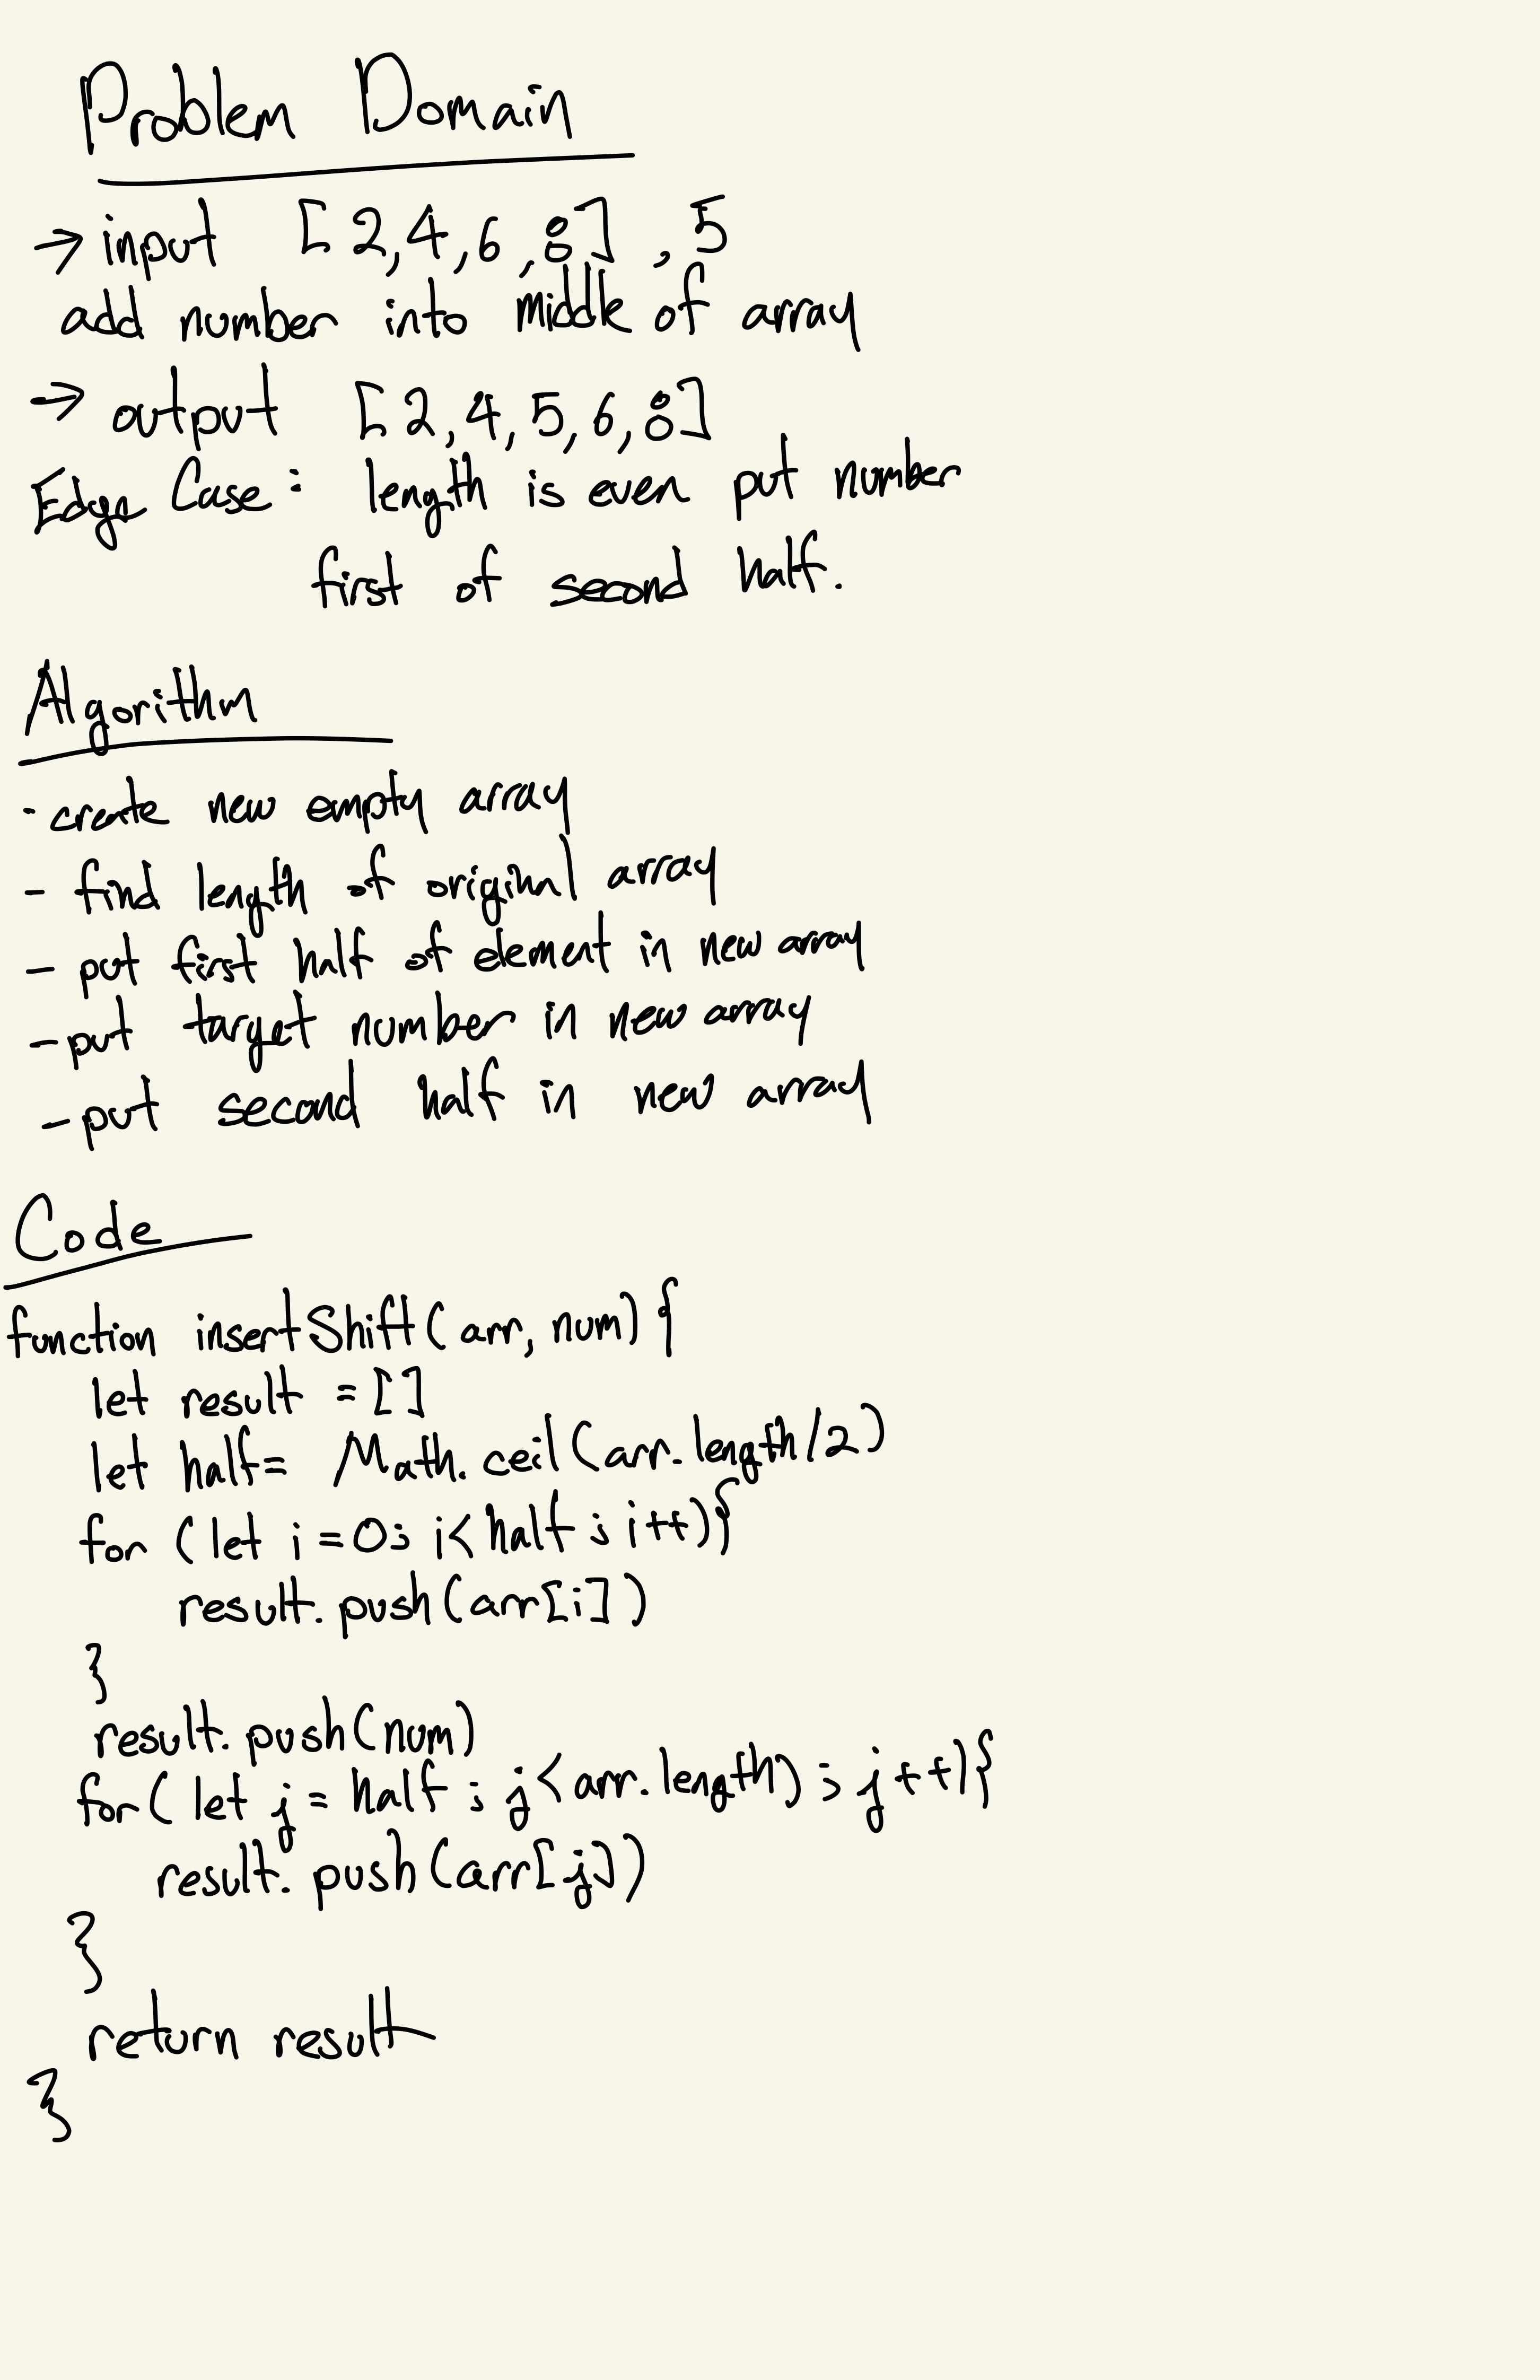 Problem Domain
→ input [2,4,6,8] , 5
add number into middle of array
→ output [2,4,5,6,8]
Edge Case: length is even put number
first of second half.
Algorithm
- create new empty array
- find length of original array
- put first half of element in new array
- put target number in new array
- put second half in new array
Code
function insertShift(arr, num) {
let result = []
let half = Math.ceil(arr.length/2)
for (let i=0; i<half; i++)){
result.push(arr[i])
}
result.push(num)
for(let j = half; j<arr.length); j++){
result.push(arr[j])
}
return result
}